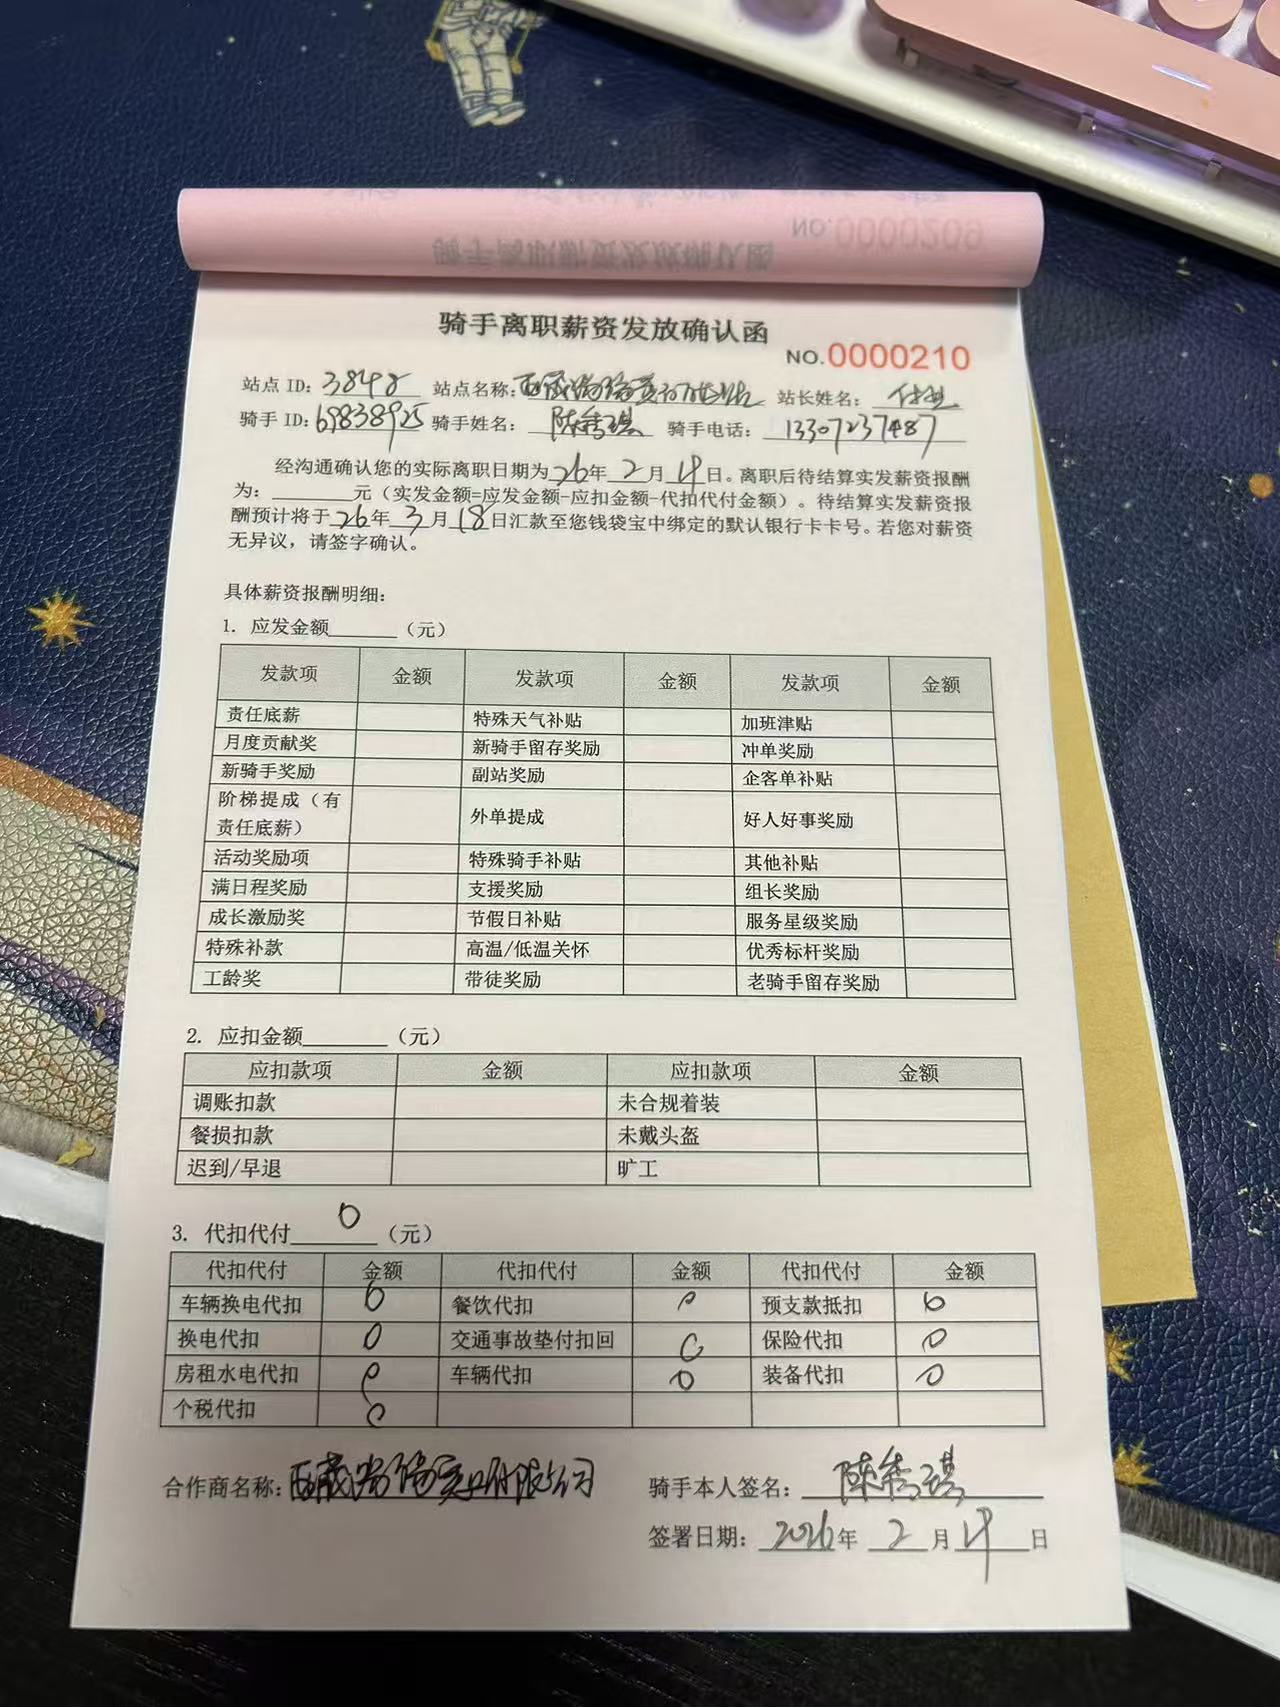 NO.0000209
骑手离职薪资发放确认函
骑手离职薪资发放确认函
NO.0000210
站点 ID: 3848 站点名称: 站长姓名:
骑手 ID: 69838925 骑手姓名: 陈秀琪 骑手电话: 13307237487
经沟通确认您的实际离职日期为26年2月19日。离职后待结算实发薪资报酬
为:________元（实发金额=应发金额-应扣金额-代扣代付金额）。待结算实发薪资报
酬预计将于26年3月18日汇款至您钱袋宝中绑定的默认银行卡卡号。若您对薪资
无异议，请签字确认。
具体薪资报酬明细:
1. 应发金额_______（元）
发款项 金额 发款项 金额 发款项 金额
责任底薪 特殊天气补贴 加班津贴
月度贡献奖 新骑手留存奖励 冲单奖励
新骑手奖励 副站奖励 企客单补贴
阶梯提成（有
责任底薪） 外单提成 好人好事奖励
活动奖励项 特殊骑手补贴 其他补贴
满日程奖励 支援奖励 组长奖励
成长激励奖 节假日补贴 服务星级奖励
特殊补款 高温/低温关怀 优秀标杆奖励
工龄奖 带徒奖励 老骑手留存奖励
2. 应扣金额________（元）
应扣款项 金额 应扣款项 金额
调账扣款 未合规着装
餐损扣款 未戴头盔
迟到/早退 旷工
3. 代扣代付 0 （元）
代扣代付 金额 代扣代付 金额 代扣代付 金额
车辆换电代扣 0 餐饮代扣 0 预支款抵扣 0
换电代扣 0 交通事故垫付扣回 0 保险代扣 0
房租水电代扣 0 车辆代扣 0 装备代扣 0
个税代扣 0
合作商名称: 有限公司 骑手本人签名: 陈秀琪
签署日期: 2026年 2月19日